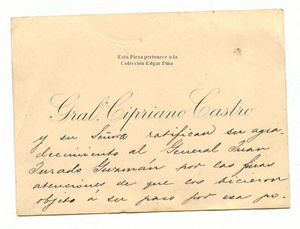 Esta Pieza pertenece a la
Colección Edgar Piña
Gral. Cipriano Castro
y su Señora ratifican su agra-
decimiento al General Juan
Jurado Guzmán por las finas
atenciones de que los hicieron
objeto á su paso por esa po-